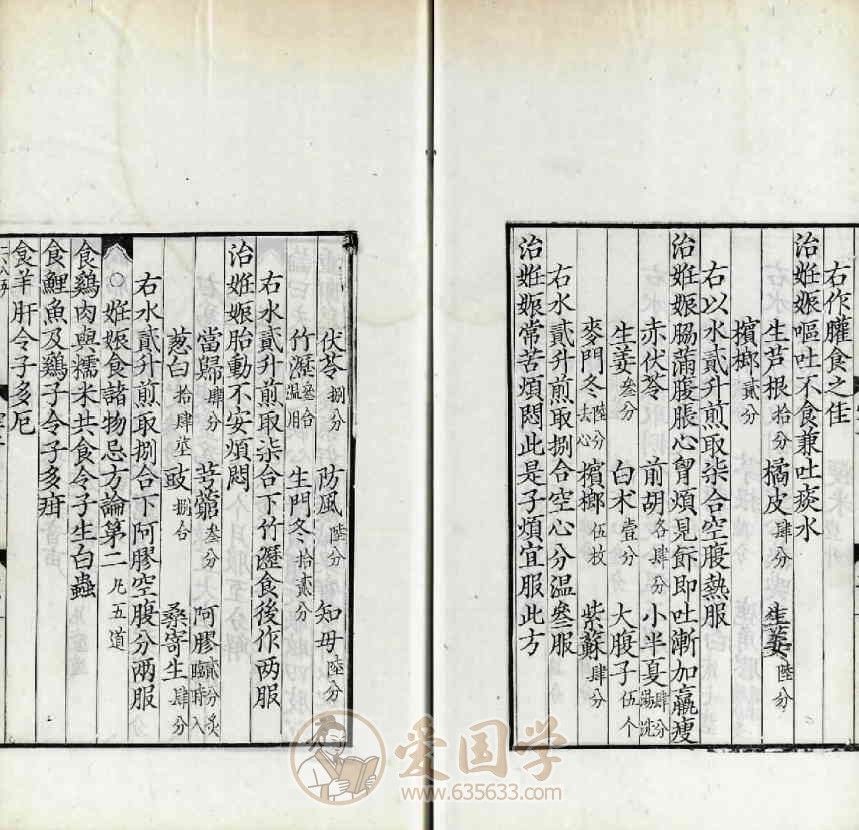 右作臛食之佳
治姙娠嘔吐不食兼吐痰水
生芦根拾分 橘皮肆分 生姜陸分
檳榔貳分
右以水貳升煎取柒合空腹熱服
治姙娠腸滿腹脹心胷煩見飰即吐漸加羸瘦
赤伏苓 前胡各肆分 小半夏肆分湯洗
生姜叁分 白朮壹分 大腹子伍个
麥門冬陸分去心 檳榔伍枚 紫蘇肆分
右水貳升煎取捌合空心分温叄服
治姙娠常苦煩悶此是子煩宜服此方
伏苓捌分 防風陸分 知母陸分
竹瀝叄合温用 生門冬拾貳分
右水貳升煎取柒合下竹瀝食後作两服
治姙娠胎動不安煩悶
當歸肆分 芎藭叄分 阿膠貳分炙臨時入
葱白拾肆莖 豉捌合 桑寄生肆分
右水貳升煎取捌合下阿膠空腹分兩服
○姙娠食諸物忌方論第二 凡五道
食鷄肉與糯米共食令子生白蟲
食鯉魚及鷄子令子多疳
食羊肝令子多厄
爱国学
www.635633.com